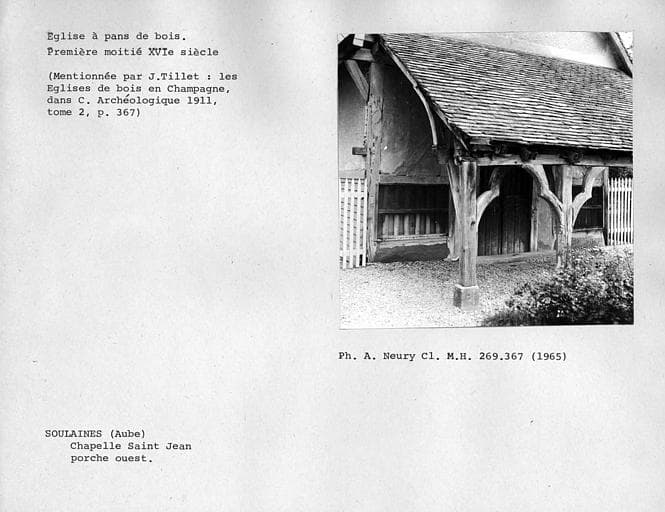 Eglise à pans de bois.
Première moitié XVIe siècle
(Mentionnée par J.Tillet : les
Eglises de bois en Champagne,
dans C. Archéologique 1911,
tome 2, p. 367)
Ph. A. Neury Cl. M.H. 269.367 (1965)
SOULAINES (Aube)
Chapelle Saint Jean
porche ouest.